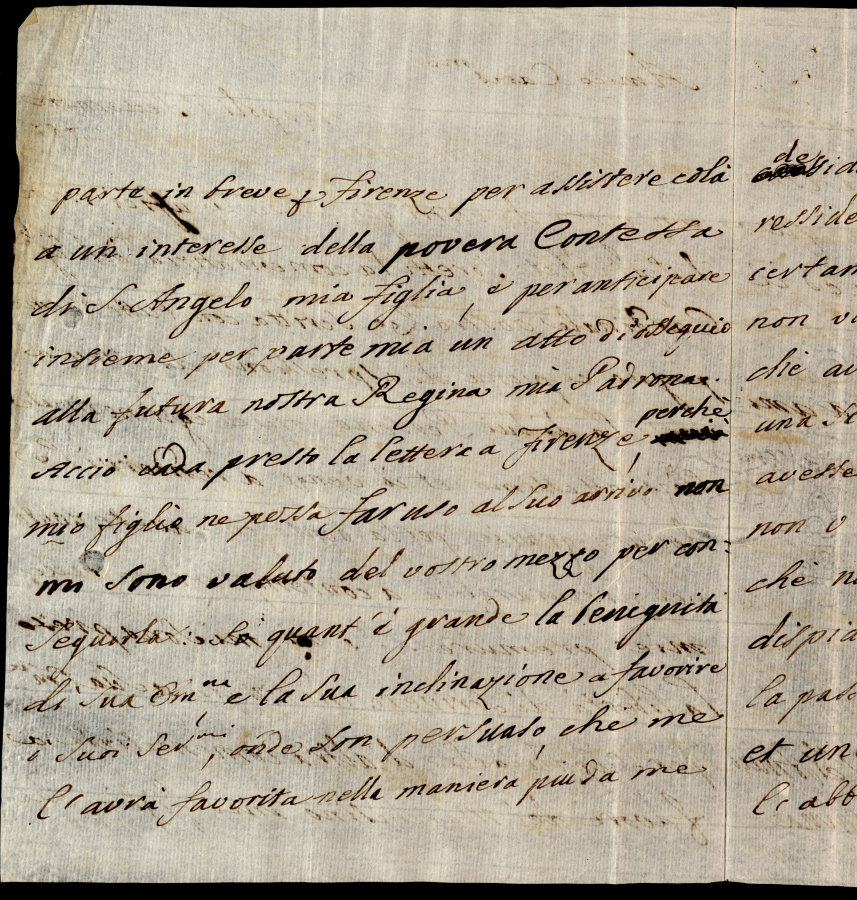 parte in breve p Firenze per assistere colà
a un interesse della povera Contessa
di S. Angelo mia figlia, è per anticipare
insieme per parte mia un atto di ossequio
alla futura nostra Regina mia Padrona.
perchè
Acciò vada presto la lettera a Firenze,
mio figlio ne possa far uso al suo arrivo non
mi sono valuto del vostro mezzo per con:
seguirla: so quant'è grande la benignità
di Sua Em.na e la sua inclinazione a favorire
i suoi Ser.mi, onde son persuaso, che me
l'avrà favorita nella maniera più da me
de
resside
certam
non v
chè av
una
avesse
non
che n
dispia
la pas
et un
l'abb